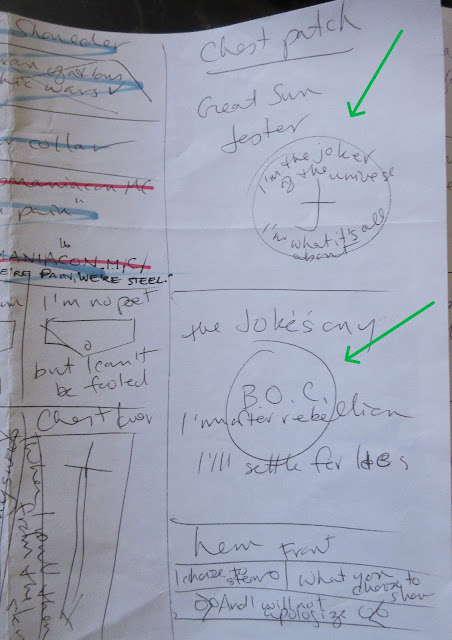 Shoulder
wars
r collar
omaniacon MC
pain"
MANIACON M/C/
E'RE PAIN, WE'RE STEEL."
I'm no poet
but I can't
be fooled
Chest
Chest patch
Great Sun
Jester
I'm the joker
of the universe
I'm what it's all
about
the Joke's on y
B.O.C.
I'm after rebellion
I'll settle for lies
hem Front
I choose to
steer
What you
choose to
show
And I will not
apologize